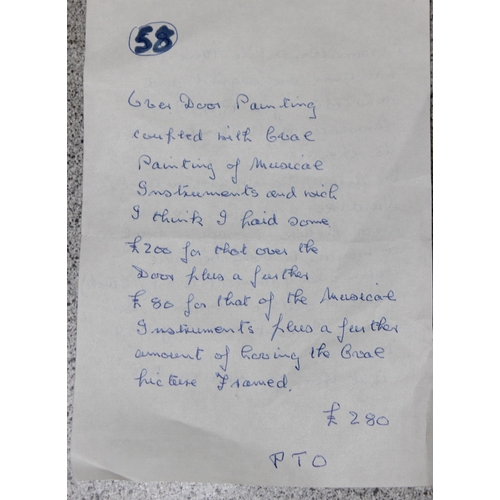 58
Over Door Painting
coupled with Oval
Painting of Musical
Instruments and wich
I think I paid some
£200 for that over the
Door plus a further
£80 for that of the Musical
Instruments plus a further
amount of having the Oval
picture Framed.
£280
PTO